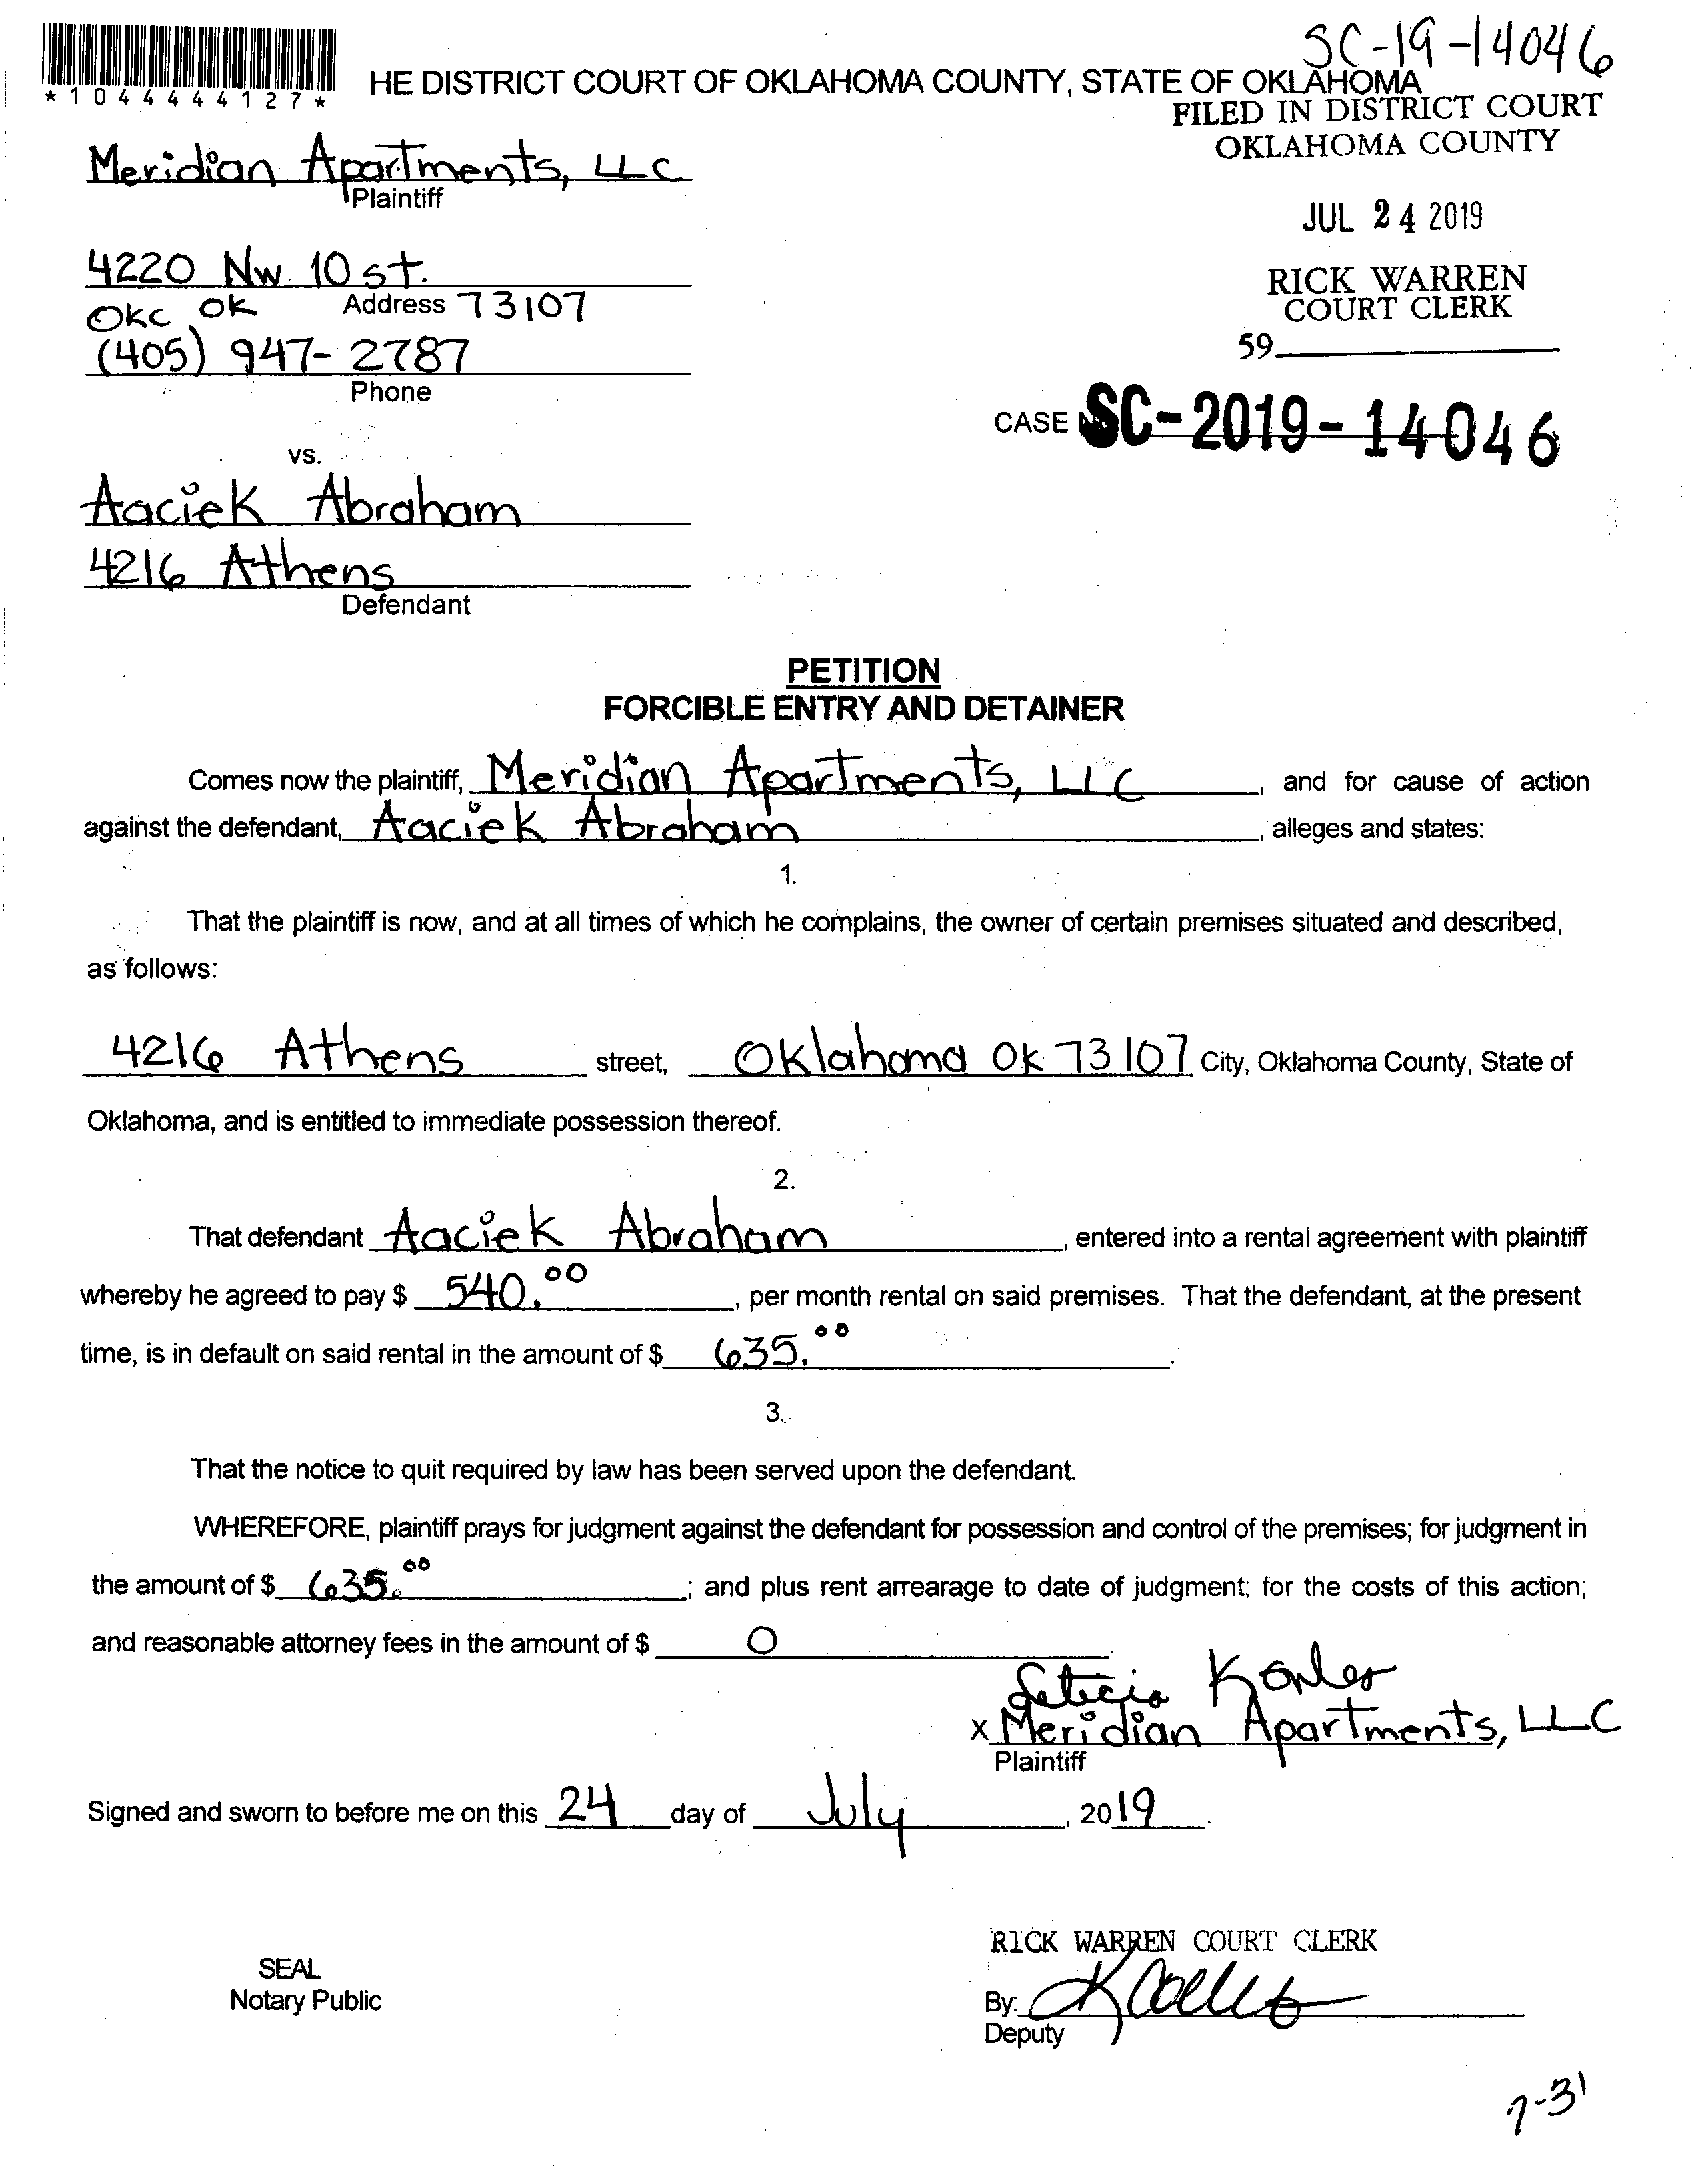 SC-19-14046
*1044444127*
HE DISTRICT COURT OF OKLAHOMA COUNTY, STATE OF OKLAHOMA
FILED IN DISTRICT COURT
OKLAHOMA COUNTY
Meridian Apartments, LLC
Plaintiff
JUL 24 2019
4220 NW 10 st.
Address
OKC OK 73107
RICK WARREN
COURT CLERK
59
(405) 947-2787
Phone
CASE SC-2019-14046
vs.
Aaciek Abraham
4216 Athens
Defendant
PETITION
FORCIBLE ENTRY AND DETAINER
Comes now the plaintiff, Meridian Apartments, LLC, and for cause of action
against the defendant, Aaciek Abraham, alleges and states:
1.
That the plaintiff is now, and at all times of which he complains, the owner of certain premises situated and described,
as follows:
4216 Athens street, Oklahoma OK 73107 City, Oklahoma County, State of
Oklahoma, and is entitled to immediate possession thereof.
2.
That defendant Aaciek Abraham, entered into a rental agreement with plaintiff
whereby he agreed to pay $ 540.00, per month rental on said premises. That the defendant, at the present
time, is in default on said rental in the amount of $ 635.00.
3.
That the notice to quit required by law has been served upon the defendant.
WHEREFORE, plaintiff prays for judgment against the defendant for possession and control of the premises; for judgment in
the amount of $ 635.00; and plus rent arrearage to date of judgment; for the costs of this action;
and reasonable attorney fees in the amount of $ 0.
Leticia
x Meridian Apartments, LLC
Plaintiff
Signed and sworn to before me on this 24 day of July, 2019.
RICK WARREN COURT CLERK
SEAL
Notary Public
By:
Deputy
7-31